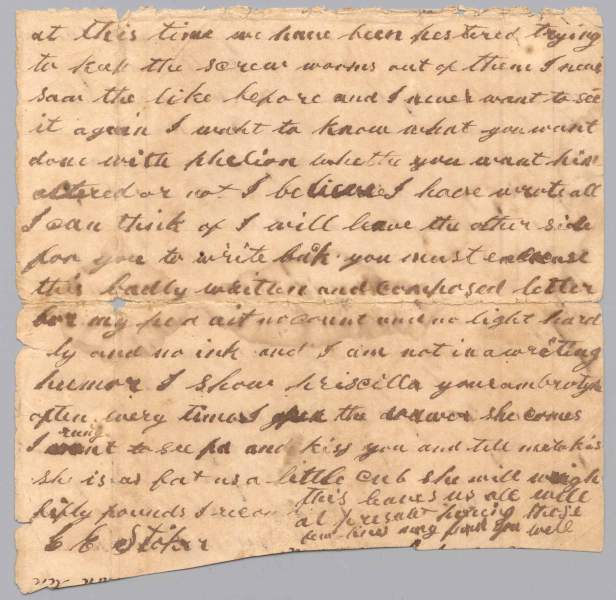 at this time we have been pestered trying
to keep the screw worms out of them I never
saw the like before and I never want to see
it again I want to know what you want
done with phelion whether you want him
altered or not I believe I have wrote all
I can think of I will leave the other side
for you to write back you must excuse
this badly written and composed letter
for my pen ait no count and no light hard
ly and no ink and I am not in a writing
humor I show priscilla your ambrotype
often every time I open the drawer she comes
runing
I want to see pa and kiss you and tell me to kis
she is as fat as a little cub she will weigh
fifty pounds I recon
this leaves us all well
at presant hoping these
few lines may find you well